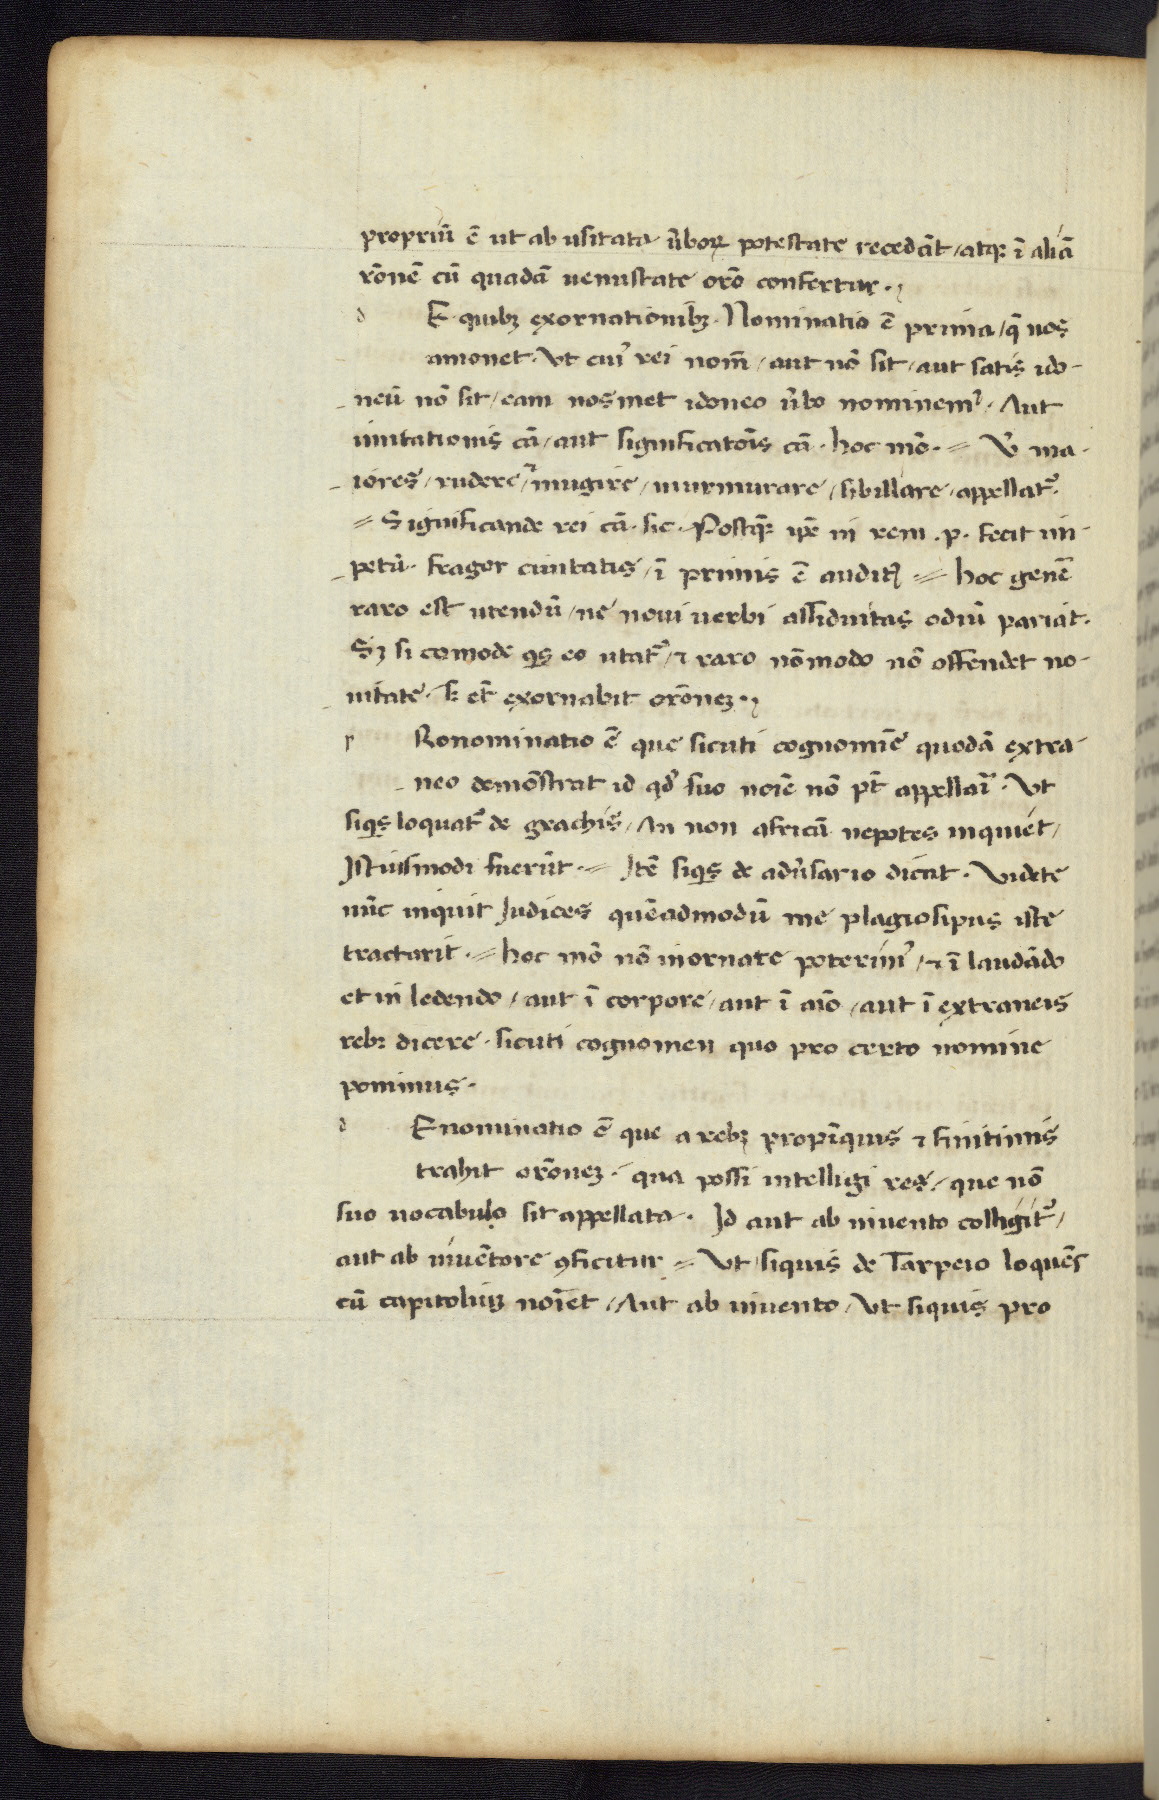 propriū ē ut ab usitata ūboꝝ potestate recedāt / atqꝫ ī aliā
rōnē cū quadā uenustate orō confertur.
d E quibꝫ exornationibꝫ. Nominatio ē prima / q̄ nos
amonet. Ut cuiꝰ rei nom̄ / aut nō sit / aut satis ido-
neū nō sit / eam nosmet idoneo ūbo nominemꝰ. Aut
imitationis cā / aut significatōis cā. hoc mō. = Ut ma-
iores / rudere / mugire / murmurare / sibillare / appellat᷑.
= Significande rei cā. sic. Postqꝫ ip̄e in rem .p. fecit im-
petū. fragor ciuitatis / ī primis ē auditꝰ = hoc genē
raro est utendū / ne noui uerbi assiduitas odiū pariat.
Sꝫ si comode qͥs eo utat᷑ / ⁊ raro nōmodo nō offendet no-
uitate. sꝫ et̄ exornabit orōneꝫ.
p Ronominatio ē que sicuti cognomīe quodā extra-
neo demōstrat id qd̓ suo noīe nō pt̄ appellari. Ut
siqͥs loquat᷑ de grachis / An non africā nepotes inquiet /
Istiusmodi fuerūt. = Itē siqͥs de adūsario dicat. Videte
nūc inquit Iudices quēadmodū me plagiosipus iste
tractarit. = hoc mō nō inornate poterimꝰ / ⁊ ī laudādo
et in ledendo / aut ī corpore / aut ī aīo / aut ī extraneis
rebꝫ dicere. sicuti cognomen quo pro certo nomine
ponimus.
d Enominatio ē que a rebꝫ propīquis ⁊ finitimis
trahit orōneꝫ. qua possi intelligi res / que nō
suo uocabulo sit appellata. Id aut ab inuento colligit᷑ /
aut ab inuētore ꝯficitur = Ut siquis de Tarpeio loquēs
cū capitoliuꝫ noīet / Aut ab inuento / Ut siquis pro